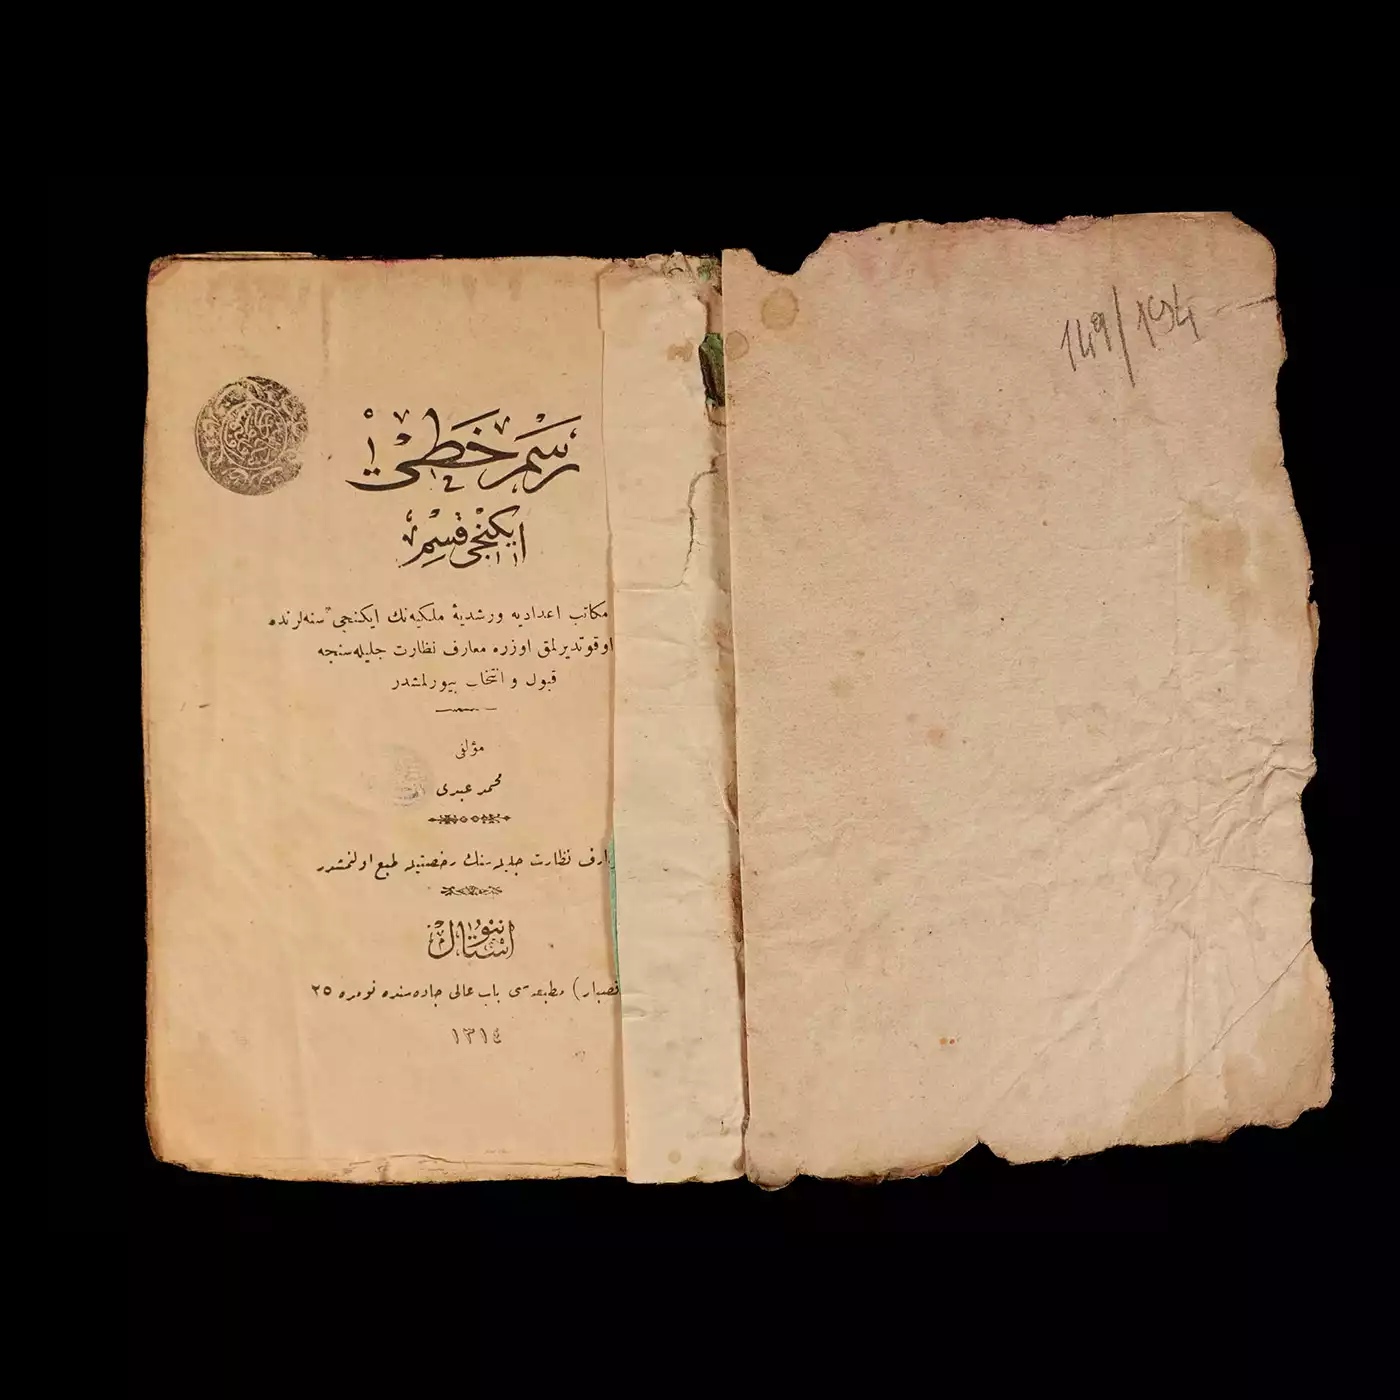 149/194
رسم خطی
ایکنجی قسم
مکاتب اعدادیه ورشدیهٔ ملکیه‌نك ایکنجی سنه‌لرنده
اوقوتدیرلمق اوزره معارف نظارت جلیله‌سنجه
قبول و انتخاب بیورلمشدر
مؤلفی
محمد عبدی
ارف نظارت جلیله‌سنك رخصتیله طبع اولنمشدر
استانبول
قصبار) مطبعه‌سی باب عالی جاده‌سنده نومرو ٢٥
١٣١٤